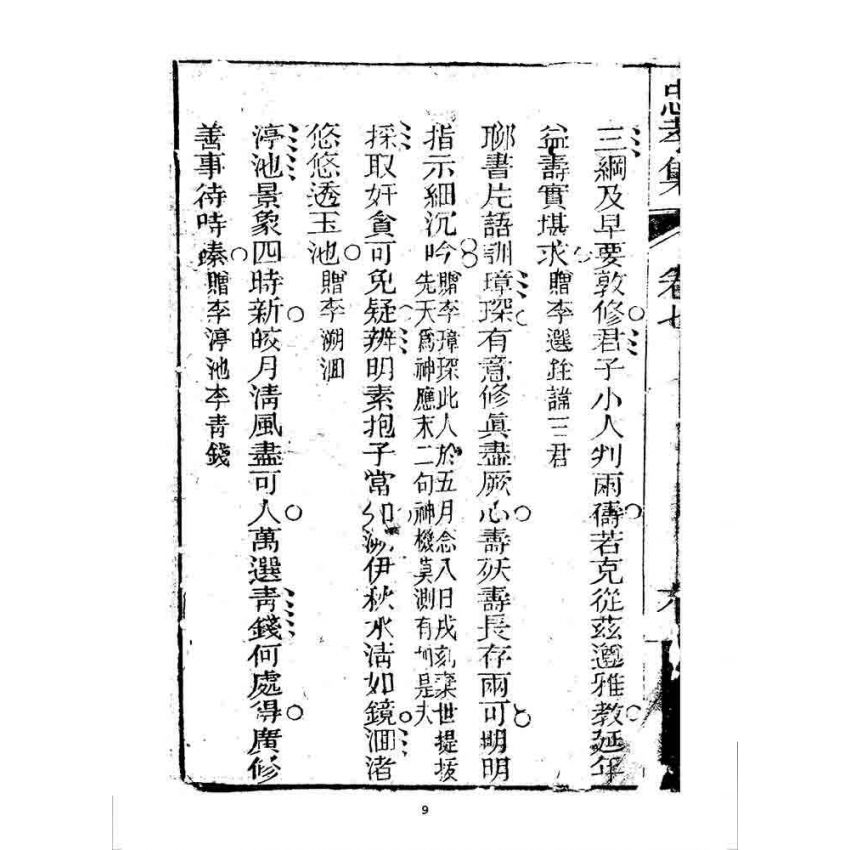 忠孝集 卷七 
三綱及早要敦修君子小人判兩儔若克從茲遵雅教延年
益壽實堪求贈李選銓諱三君
聊書片語訓璋琛有意修眞盡厥心壽殀壽長存兩可明明
指示細沉吟贈李璋琛此人於五月念八日戌刻棄世提拔
先天爲神應末二句神機莫測有如是夫
採取奸貪可免疑辨明素抱子當知溯伊秋水淸如鏡洄渚
悠悠透玉池贈李溯洄
渟池景象四時新皎月淸風盡可人萬選靑錢何處得廣修
善事待時臻贈李渟池李靑錢
9